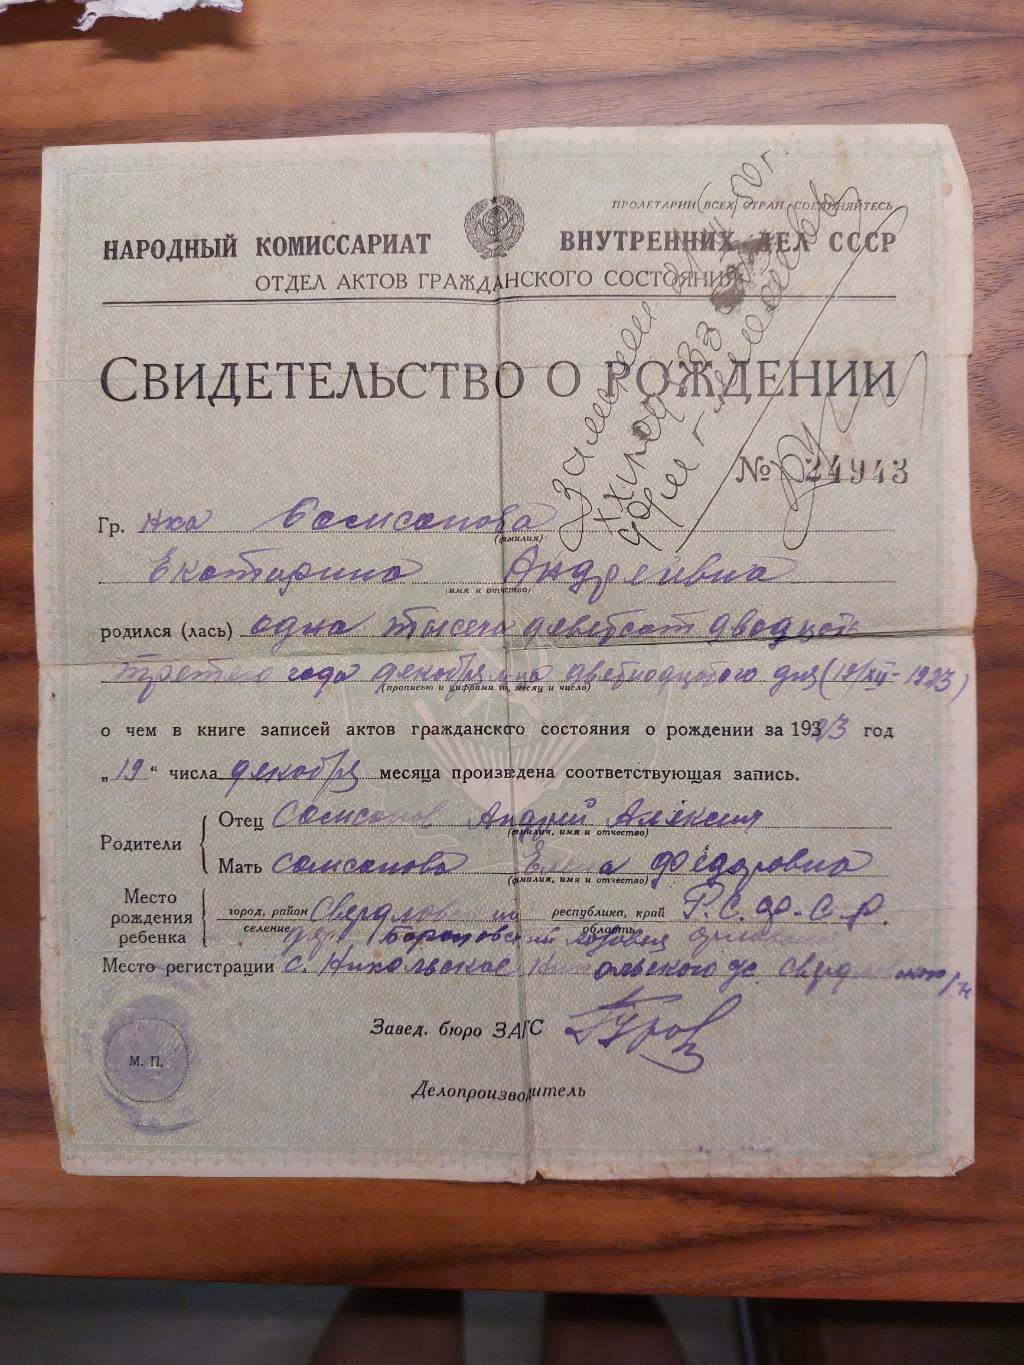 ПРОЛЕТАРИИ ВСЕХ СТРАН, СОЕДИНЯЙТЕСЬ
НАРОДНЫЙ КОМИССАРИАТ ВНУТРЕННИХ ДЕЛ СССР
ОТДЕЛ АКТОВ ГРАЖДАНСКОГО СОСТОЯНИЯ
СВИДЕТЕЛЬСТВО О РОЖДЕНИИ
№ 24943
Гр. нка Самсонова
(фамилия)
Екатирина Андреивна
(имя и отчество)
родился (лась) одна тысеча деветсот двадцать
третего года декабря м-ца
(прописью и цифрами год, месяц и число)
дня (19/XII-1923)
о чем в книге записей актов гражданского состояния о рождении за 1923 год
„19“ числа декабря месяца произведена соответствующая запись.
Родители
Отец Самсонов Андрей Алексеич
(фамилия, имя и отчество)
Мать Самсонова Елена Федоровна
(фамилия, имя и отчество)
Место рождения ребенка
город, район Свердловский республика, край Р.С.Ф.С.Р.
селение дер. область
Место регистрации с. Никольское Никольского с Свердловского р-н
Завед. бюро ЗАГС Гуров
М. П.
Делопроизводитель